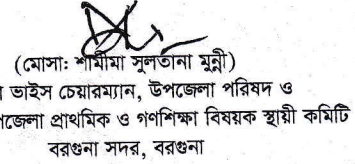 (মোসা: শামীমা সুলতানা মুন্নী)
ভাইস চেয়ারম্যান, উপজেলা পরিষদ ও
প্রাথমিক ও গণশিক্ষা বিষয়ক স্থায়ী কমিটি
বরগুনা সদর, বরগুনা